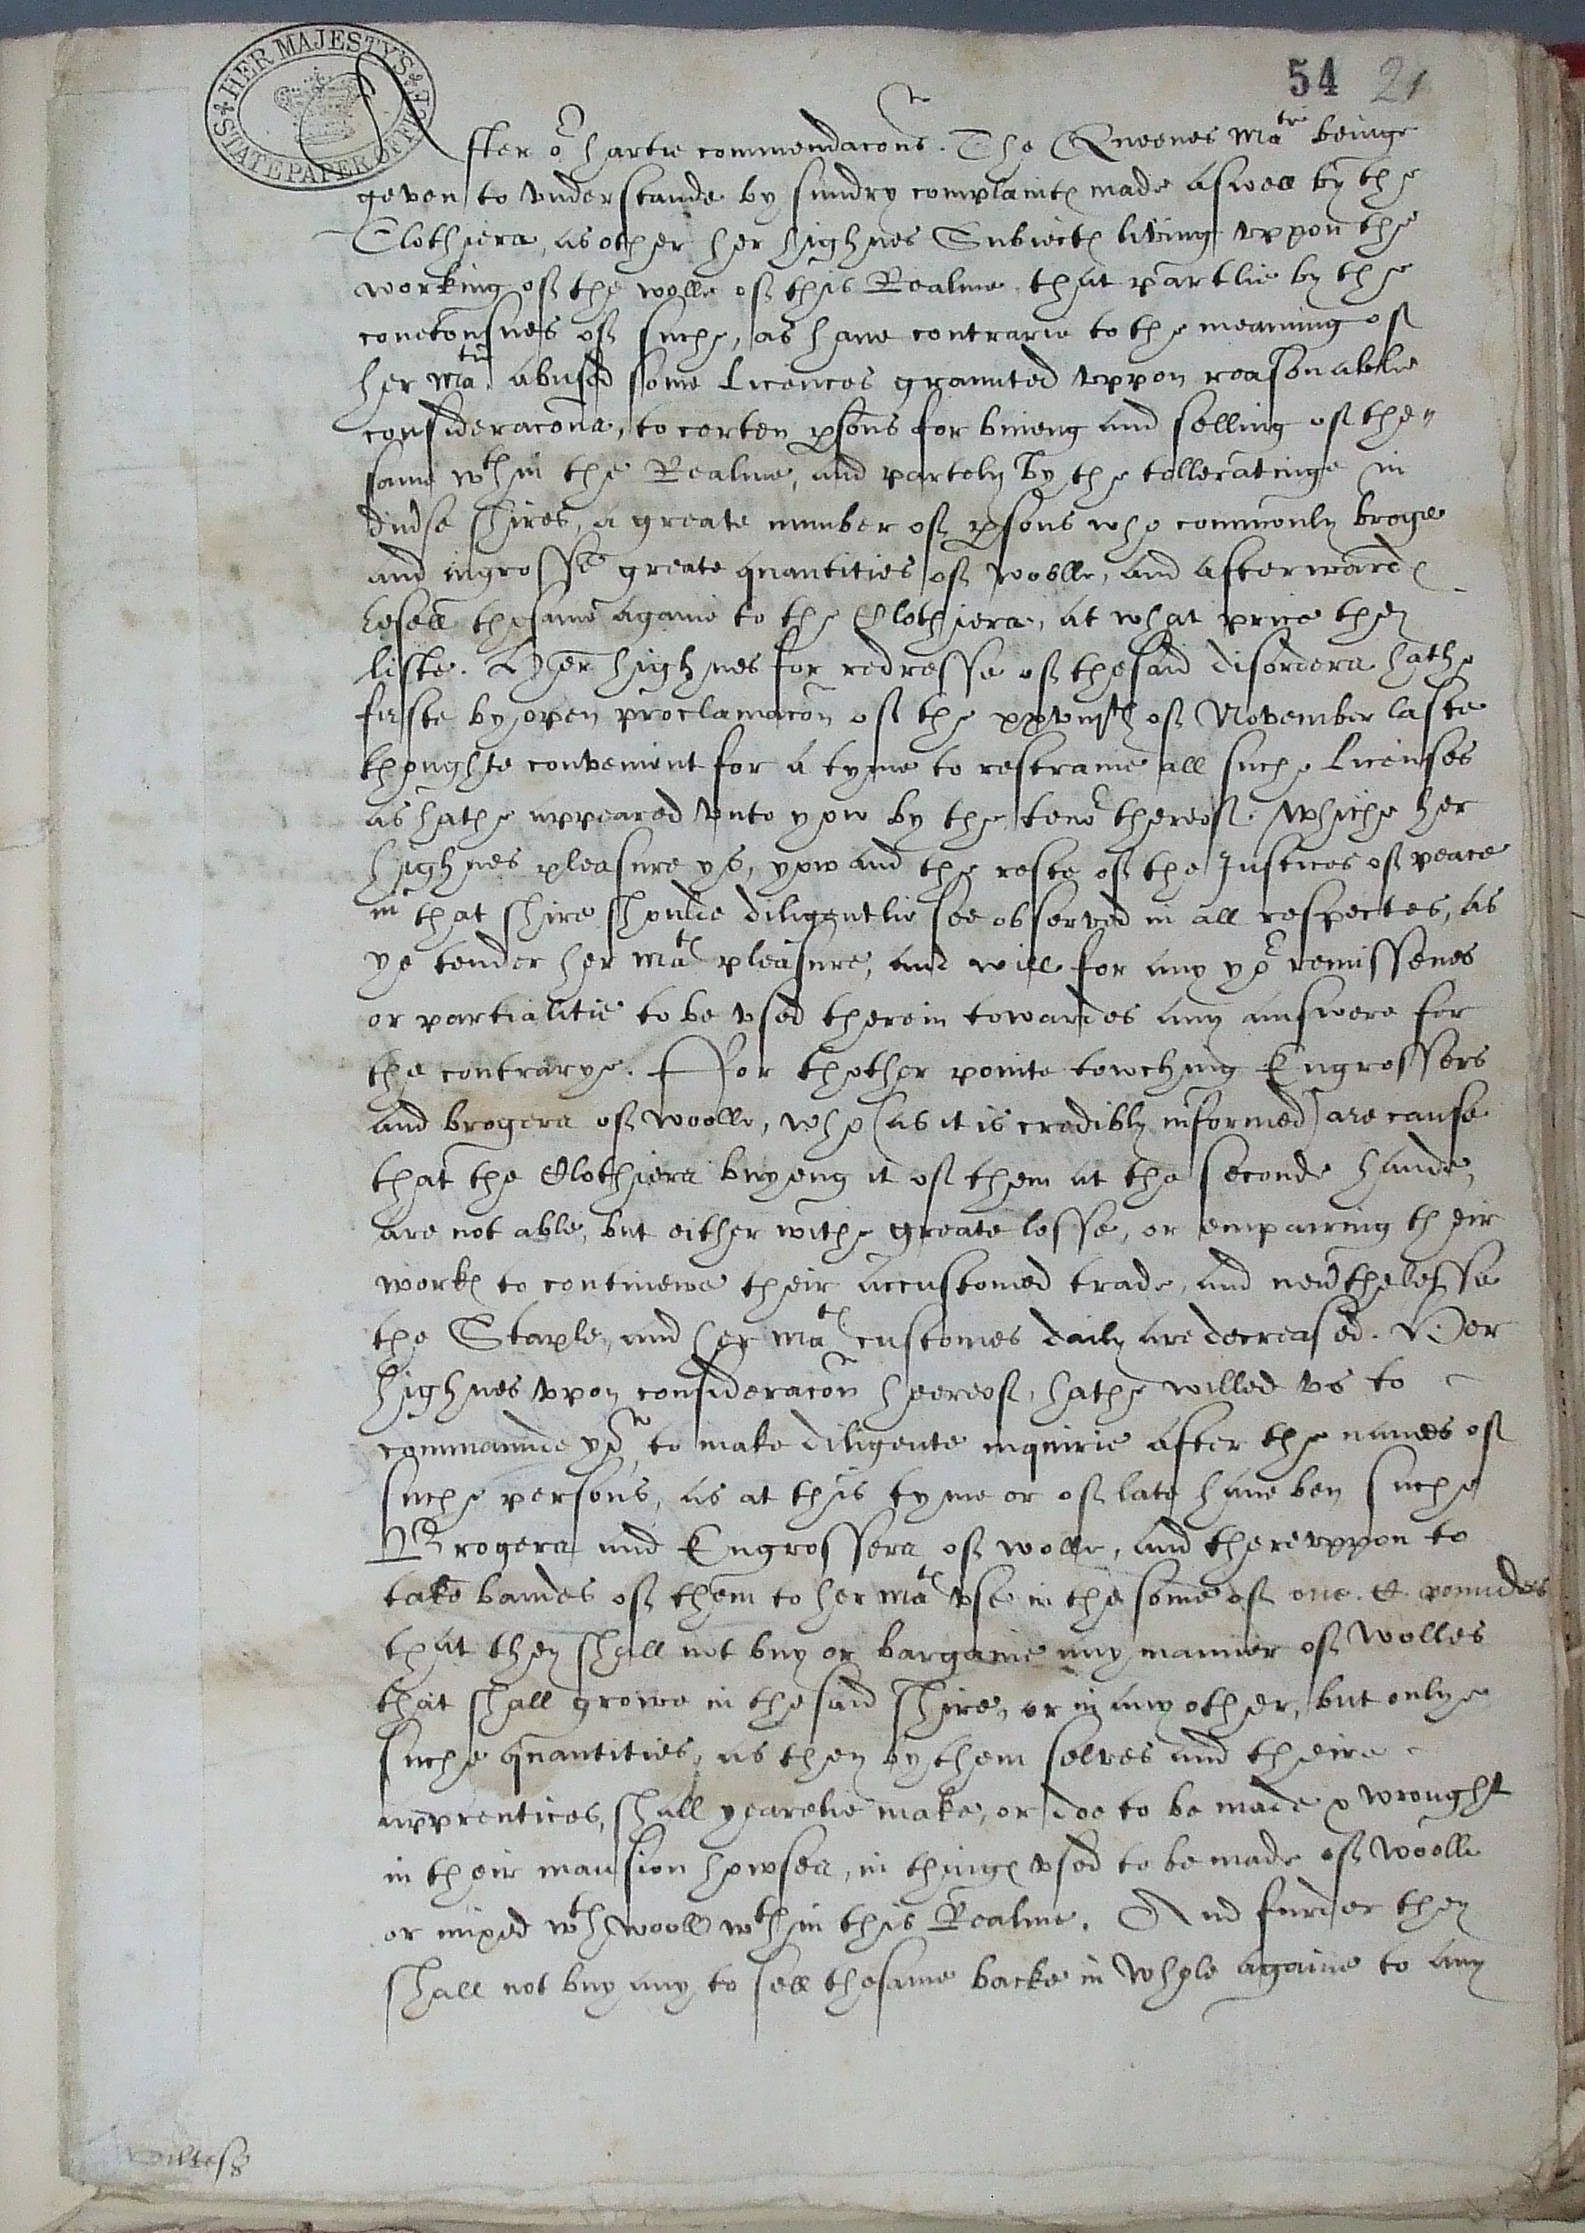 HER MAJESTY'S STATE PAPER OFFICE
54 21
After or hartie commendacons. The Queenes Matie beinge
geven to vnderstande by sundry complaintes made aswell by the
Clothiers, as other her highnes Subiectes living vppon the
working of the wolle of this Realme, that partlie by the
couetousnes of suche, as haue contrarie to the meaning of
her Matie abused some licences graunted vppon reasonable
consideracons, to certen psons for buieng and selling of the
same wthin the Realme, and partely by the tolleratinge in
diuse shires, a greate number of psons who commonly broge
and ingrosse greate quantities of woolle, and afterwardes
resell thesame againe to the Clothiers, at what price they
liste. Her highnes for redresse of thesaid disorders hathe
firste by open proclamacon of the xxviijth of November laste
thoughte convenient for a tyme to restraine all suche licenses
as hathe appeared vnto yow by the teno r thereof. Whiche her
highnes pleasure ys, yow and the reste of the Justices of peace
in that shire shoulde diligentlie see observed in all respectes, as
ye tender her Mats pleasure, and will for any yor remissenes
or partialitie to be vsed therein towardes any answere for
the contrarye. For thother pointe towching Engrossers
and brogers of woolle, who (as it is credibly informed) are cause
that the Clothiers buyeng it of them at the seconde hande,
are not able, but either withe greate losse, or empairing their
workes to continewe their accustomed trade, and neuthelesse
the Staple, and her Mats customes daily are decreased. Her
highnes vpon consideracon heereof, hathe willed vs to
commaunde yow to make diligente inquirie after the names of
suche persons, as at this tyme or of late haue ben suche
Brogers and Engrossers of wolle, and therevppon to
take bandes of them to her Mats vse in the some of one C poundes
that they shall not buy or bargaine any manner of wolles
that shall growe in thesaid shire, or in any other, but onlye
suche quantities, as they by them selves and theire
apprentices, shall yearelie make, or doe to be made & wrought
in their mansion howses, in thinges vsed to be made of woolle
or mixed wth wooll wthin this Realme. And furder they
shall not buy any to sell thesame backe in whole againe to any
Wiltess